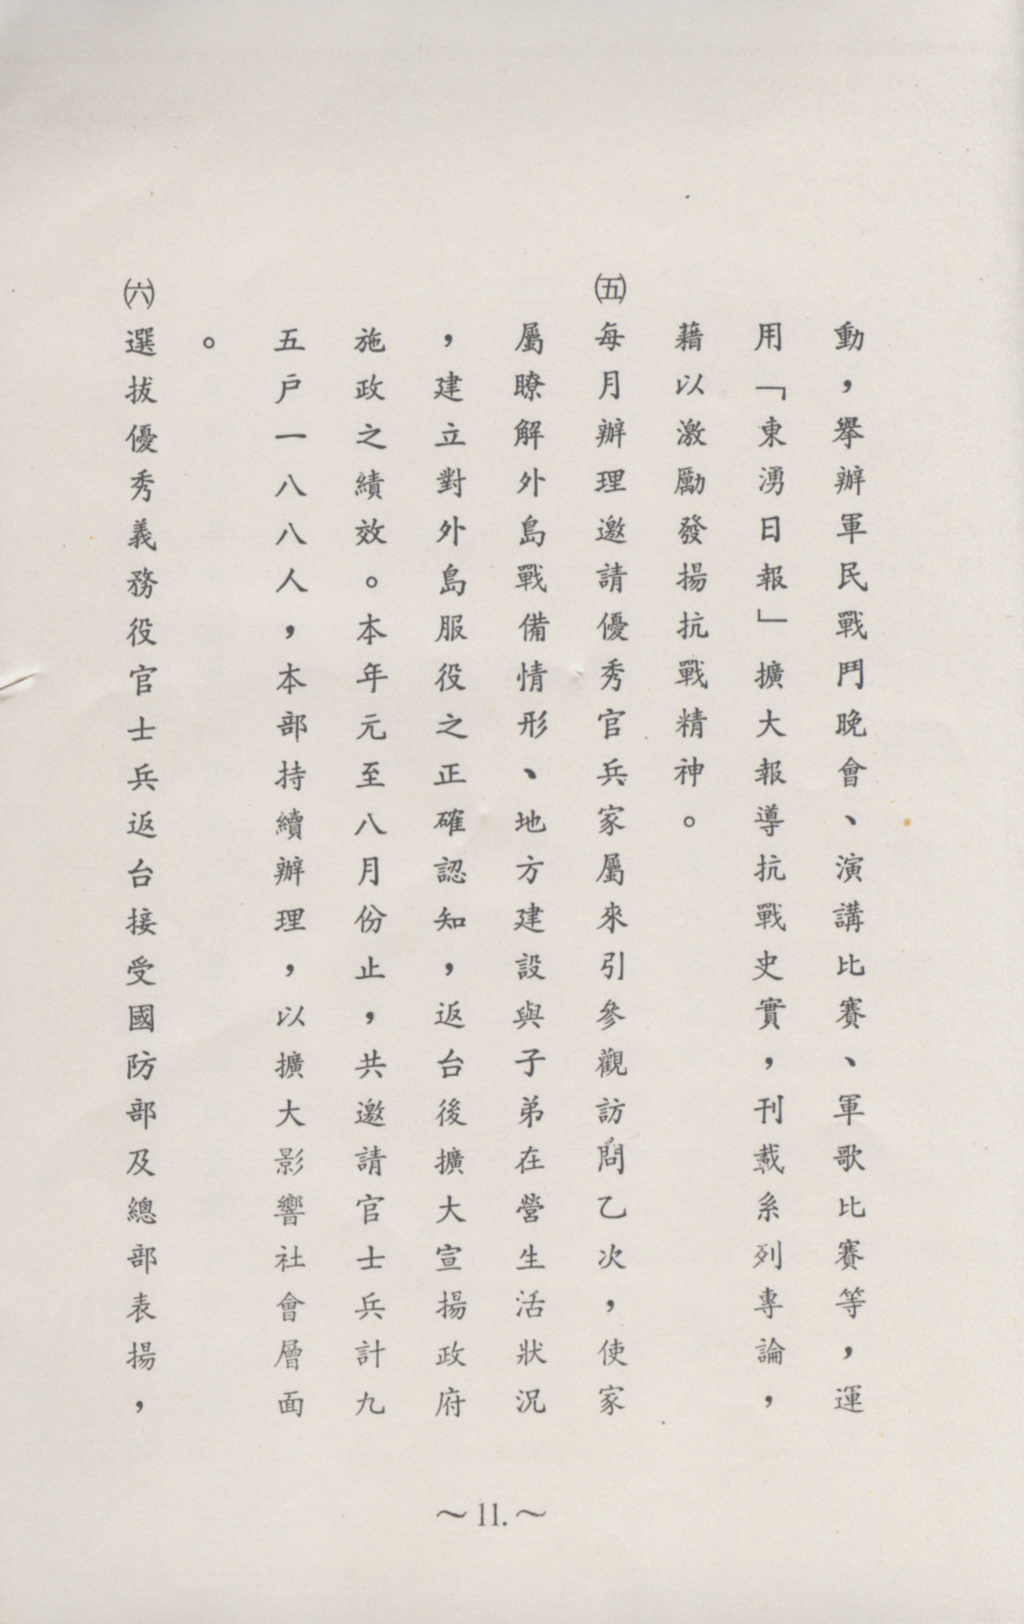 動，舉辦軍民戰鬥晚會、演講比賽、軍歌比賽等，運
用「東湧日報」擴大報導抗戰史實，刊載系列專論，
藉以激勵發揚抗戰精神。
㈤每月辦理邀請優秀官兵家屬來引參觀訪問乙次，使家
屬瞭解外島戰備情形、地方建設與子弟在營生活狀況
，建立對外島服役之正確認知，返台後擴大宣揚政府
施政之績效。本年元至八月份止，共邀請官士兵計九
五戶一八八人，本部持續辦理，以擴大影響社會層面
。
㈥選拔優秀義務役官士兵返台接受國防部及總部表揚，
～11.～